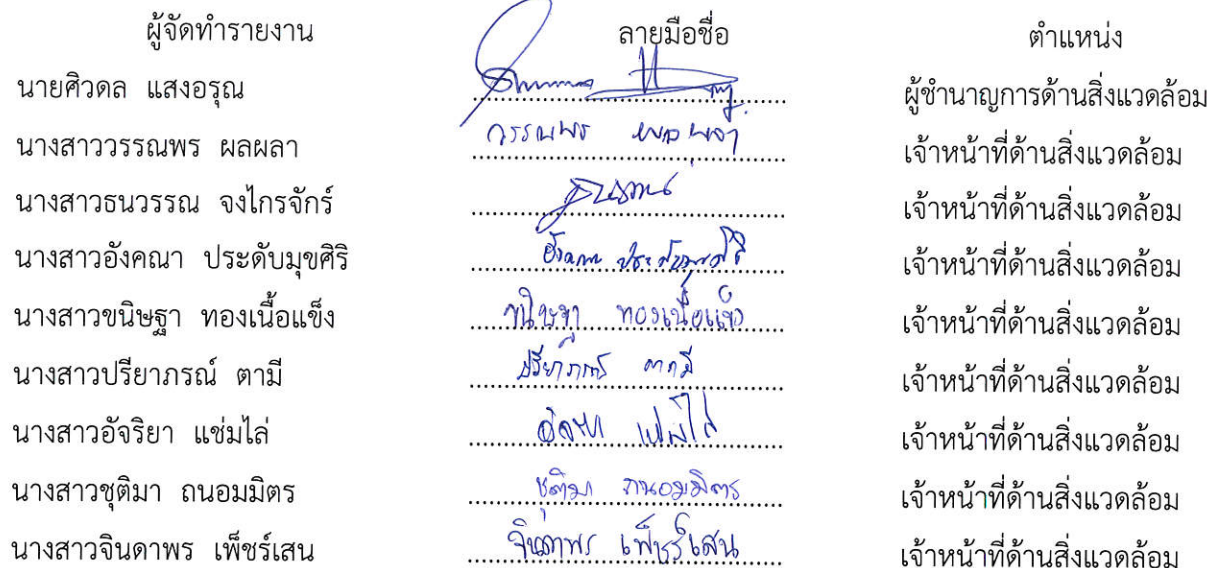 ผู้จัดทำรายงาน ลายมือชื่อ ตำแหน่ง
นายศิวดล แสงอรุณ ผู้ชำนาญการด้านสิ่งแวดล้อม
นางสาววรรณพร ผลผลา วรรณพร ผลผลา เจ้าหน้าที่ด้านสิ่งแวดล้อม
นางสาวธนวรรณ จงไกรจักร์ ธนวรรณ เจ้าหน้าที่ด้านสิ่งแวดล้อม
นางสาวอังคณา ประดับมุขศิริ อังคณา ประดับมุขศิริ เจ้าหน้าที่ด้านสิ่งแวดล้อม
นางสาวขนิษฐา ทองเนื้อแข็ง ขนิษฐา ทองเนื้อแข็ง เจ้าหน้าที่ด้านสิ่งแวดล้อม
นางสาวปรียาภรณ์ ตามี ปรียาภรณ์ ตามี เจ้าหน้าที่ด้านสิ่งแวดล้อม
นางสาวอัจริยา แช่มไล่ อัจริยา แช่มไล่ เจ้าหน้าที่ด้านสิ่งแวดล้อม
นางสาวชุติมา ถนอมมิตร ชุติมา ถนอมมิตร เจ้าหน้าที่ด้านสิ่งแวดล้อม
นางสาวจินดาพร เพ็ชร์เสน จินดาพร เพ็ชร์เสน เจ้าหน้าที่ด้านสิ่งแวดล้อม